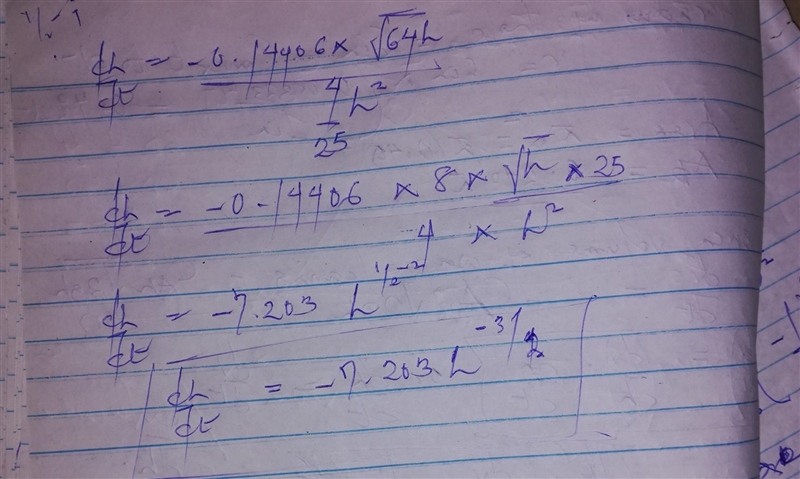 dh/dt = -0.14406 × √64h / (4/25 h²)
dh/dt = -0.14406 × 8 × √h × 25 / (4 × h²)
dh/dt = -7.203 h^(1/2-2)
dh/dt = -7.203 h^(-3/2)